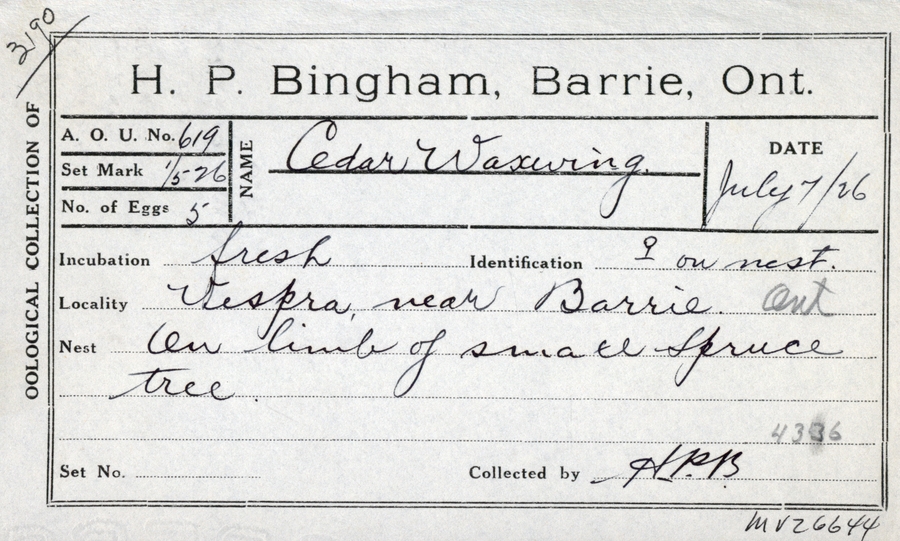 3190
OOLOGICAL COLLECTION OF
H. P. Bingham, Barrie, Ont.
A. O. U. No. 619
Set Mark 1/5-26
No. of Eggs 5
NAME Cedar Waxwing.
DATE
July 7/26
Incubation fresh Identification ♀ on nest.
Locality Vespra, near Barrie. Ont
Nest On limb of small Spruce
tree.
4336
Set No. Collected by H.P.B
MVZ6644